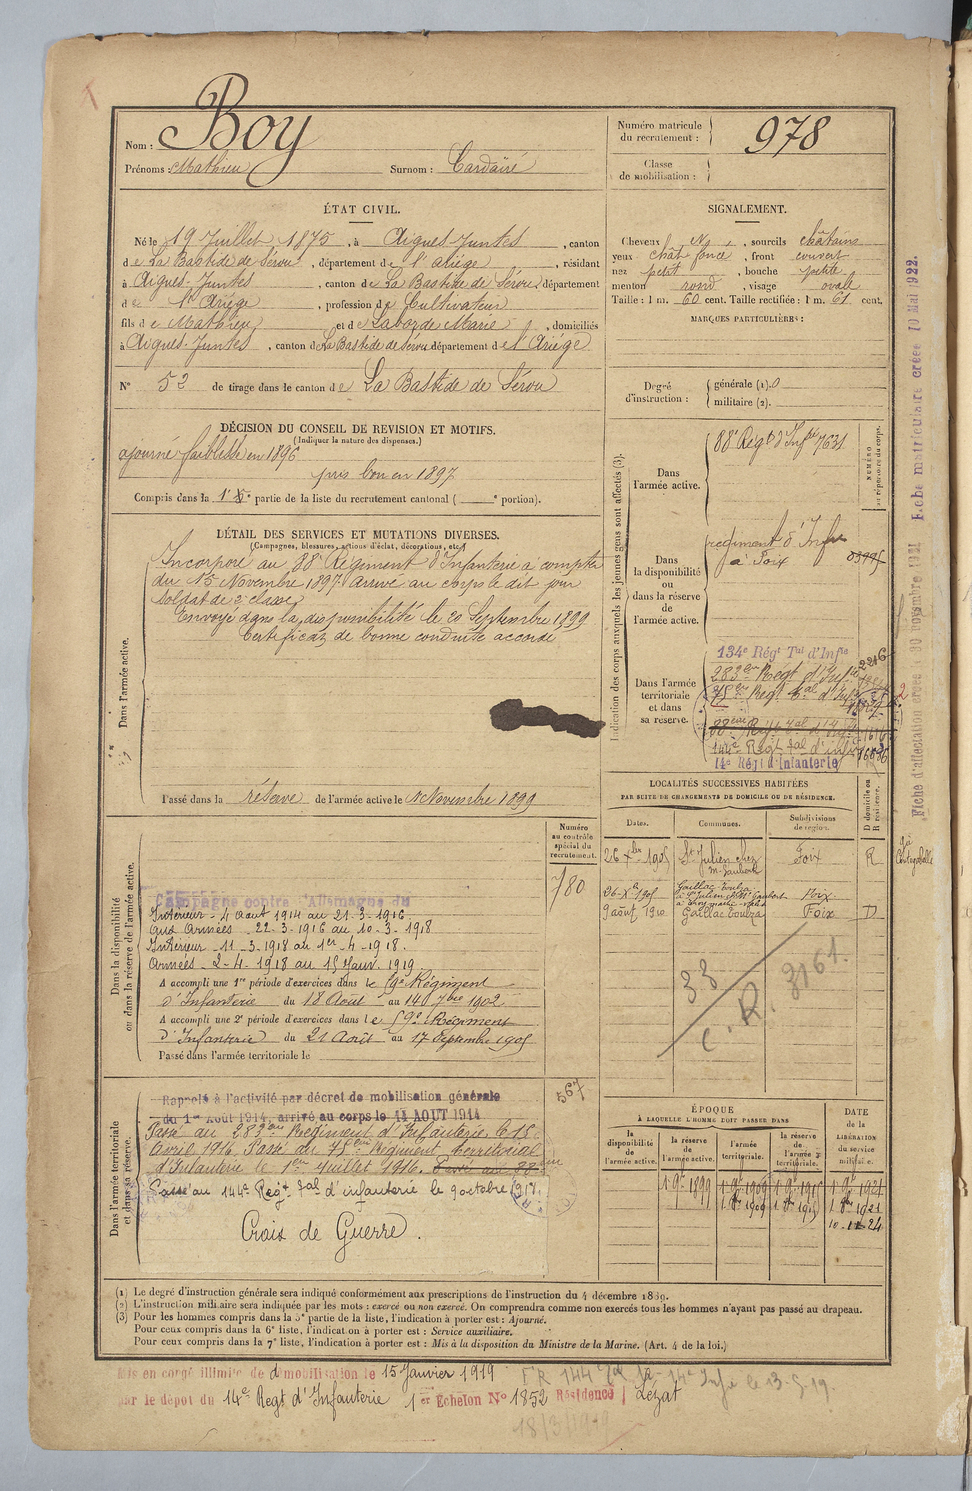 Nom : Boy
Prénoms : Mathieu Surnom : Cardaïré
Numéro matricule du recrutement : 978
Classe de mobilisation :
ÉTAT CIVIL.
Né le 19 Juillet 1875, à Aigues-Juntes, canton
de La Bastide de Sérou, département de l'Ariège, résidant
à Aigues-Juntes, canton de La Bastide de Sérou, département
de l'Ariège, profession de Cultivateur
fils de Mathieu et de Laborde Marie, domiciliés
à Aigues-Juntes, canton de La Bastide de Sérou département de l'Ariège
N° 52 de tirage dans le canton de La Bastide de Sérou
SIGNALEMENT.
Cheveux N, sourcils châtains
yeux chat foncé, front couvert
nez petit, bouche petite
menton rond, visage ovale
Taille : 1 m. 60 cent. Taille rectifiée : 1 m. 61 cent.
MARQUES PARTICULIÈRES :
Degré d'instruction : générale (1). 0
militaire (2).
DÉCISION DU CONSEIL DE REVISION ET MOTIFS.
(Indiquer la nature des dispenses.)
ajourné faiblesse en 1896
pris bon en 1897
Compris dans la 1e partie de la liste du recrutement cantonal ( portion).
DÉTAIL DES SERVICES ET MUTATIONS DIVERSES.
(Campagnes, blessures, actions d'éclat, décorations, etc.)
Dans l'armée active.
Incorporé au 88e Régiment d'Infanterie à compter
du 15 Novembre 1897. Arrivé au corps le dit jour
soldat de 2e classe
Envoyé dans la disponibilité le 20 Septembre 1899
Certificat de bonne conduite accordé
Passé dans la réserve de l'armée active le 1 Novembre 1899
Indication des corps auxquels les jeunes gens sont affectés (3).
NUMÉRO au répertoire du corps.
Dans l'armée active.
88e Regt d'Inftie 7631
Dans la disponibilité ou dans la réserve de l'armée active.
regiment d'Infie
à Foix
Dans l'armée territoriale et dans sa réserve.
134e Régt Tal d'Infie
283eme Régt d'Inf. 2216
75eme Reg. tal d'Inf.
88eme Regt tal d'Inf
144e Régt tal d'infie
14e Régt d'Infanterie
LOCALITÉS SUCCESSIVES HABITÉES
PAR SUITE DE CHANGEMENTS DE DOMICILE OU DE RÉSIDENCE.
Dates. Communes. Subdivisions de région. D domicile ou R résidence.
26 Xbre 1901 St Julien Foix R
26-Xb 1901 Gaillac-Toulza Foix
9 août 1910 Gaillac Toulza Foix D
33
C. R. 3161.
Dans la disponibilité ou dans la réserve de l'armée active.
Numéro au contrôle spécial du recrutement.
780
Campagne contre l'Allemagne du
Intérieur - 4 Aout 1914 au 21-3-1916
aux Armées - 22-3-1916 au 10-3-1918
Intérieur - 11-3-1918 au 1er-4-1918.
Armées - 2-4-1918 au 15 Janv. 1919
A accompli une 1re période d'exercices dans le 59e Régiment
d'Infanterie du 18 Aout au 14 7bre 1902
A accompli une 2e période d'exercices dans le 59e Régiment
d'Infanterie du 21 Août au 17 Septembre 1905
Passé dans l'armée territoriale le
Dans l'armée territoriale et dans sa réserve.
567
Rappelé à l'activité par décret de mobilisation générale
du 1er Août 1914, arrivé au corps le 14 AOUT 1914
Passé au 283eme Régiment d'Infanterie le 18
Avril 1916. Passé au 75eme Régiment territorial
d'Infanterie le 1er Juillet 1916. Passé au 88eme
Passé au 144e Regt tal d'infanterie le 9 octobre 1917.
Croix de Guerre.
ÉPOQUE
À LAQUELLE L'HOMME DOIT PASSER DANS
DATE DE LA LIBÉRATION du service militaire.
la disponibilité de l'armée active. la réserve de l'armée active. l'armée territoriale. la réserve de l'armée territoriale.
1 9e 1899 1 9e 1909 1 9e 1915 1 9e 1921
1 8bre 1909 1 8bre 1915 1 8bre 1921
10-11-24
(1) Le degré d'instruction générale sera indiqué conformément aux prescriptions de l'instruction du 4 décembre 1889.
(2) L'instruction militaire sera indiquée par les mots : exercé ou non exercé. On comprendra comme non exercés tous les hommes n'ayant pas passé au drapeau.
(3) Pour les hommes compris dans la 5e partie de la liste, l'indication à porter est : Ajourné.
Pour ceux compris dans la 6e liste, l'indication à porter est : Service auxiliaire.
Pour ceux compris dans la 7e liste, l'indication à porter est : Mis à la disposition du Ministre de la Marine. (Art. 4 de la loi.)
Mis en congé illimité de démobilisation le 15 Janvier 1919
par le dépot du 14e Regt d'Infanterie 1er Echelon N° 1852 Résidence Lézat
18/3/1919
Fiche d'affectation créée le 30 novembre 1921 Fiche matriculaire créée 10 Mai 1922.